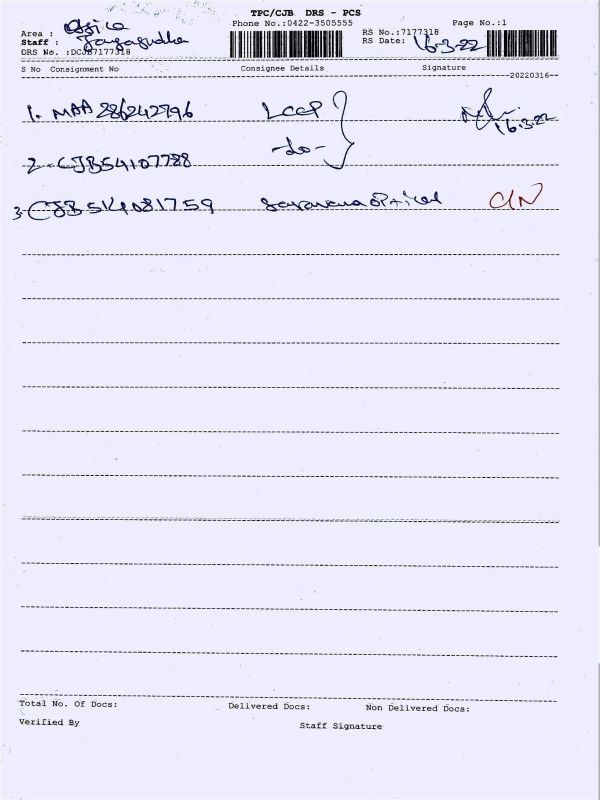 TPC/CJB DRS - PCS
Phone No.:0422-3505555
Page No.:1
Area : Office
Staff :
DRS No. :DCJB7177318
RS No.:7177318
RS Date: 16-3-22
S No Consignment No Consignee Details Signature
20220316
1. MAA 286242796 LCCP
16.3.22
2. CJB54107788 -do-
3. CJB514081759 Saravana optical C/N
Total No. Of Docs: Delivered Docs: Non Delivered Docs:
Verified By Staff Signature